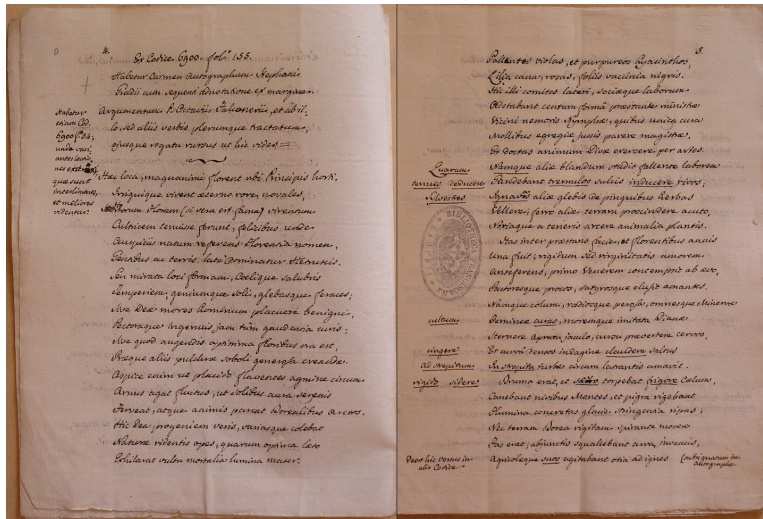 4.
Ex Codice 6900. fol. 155.
Habetur Carmen autographum Stephani
Gradii cum sequenti adnotatione ex margine.
Argumentum P. Octavii Falconerii, et ab il-
lo sed aliis verbis plerumque tractatum,
ejusque rogatu rursus ut hic vides =
Habetur
etiam Cod.
6900 f.
unde vari
antes lectio
nes
quae sunt
interlineares,
et meliores
videntur.
Heu loca, magnanimi florent ubi Principis horti,
Irriguique virent aeterno rore, novales,
Floram (si vera est fama) virentum
Cultricem tenuisse ferunt, felicibus unde
Auspiciis natum referens Florentia nomen,
Gentibus ac terris late Dominatur Hetruscis.
Seu mirata loci formam, Coelique salubris
Temperiem, geniumque soli, glebasque feraces;
Sive Deae mores hominum placuere benigni,
Pectoraque ingenuis jam tum gaudentia curis;
Sive quod augendis optima floribus ora est,
Praeque aliis pulchrae soboli generosa creandae.
Aspice enim ut placido flaventes agmine circum
Arnus agat fluctus, ut collibus aura serenis
Ferveat, atque animis purset
Hic Dea progeniem veris, variasque colebat
Naturae ridentis opes, quarum optima laeto
Exhilarat vultu mortalia lumina mater.
5.
Pallentes violas, et purpureos Hyacinthos,
Lilia cana, rosas, foliis vaccinia nigris.
Hic illi comites lateri, sociaeque laborum
Adstabant centum forma praestante ministrae
Vicini nemoris Nymphae, quibus unica cura
Mollibus egregiae jussis parere magistrae,
Et doctas animum Divae exercere per artes.
Quarum
tenues deducere
Silvestres
Namque aliae blandum studio fallente laborem
Gaudebant tremulos sulcis inducere rivos;
aliae glebis de pinguibus herbas
Vellere; ferro aliae terram proscindere acuto,
Notiaque a teneris arcere animalia plantis.
Has inter praestans facie, et florentibus annis
Una fuit; rigidum sed virginitatis amorem
Anteferens, primo Venerem contempsit ab aevo,
Pastoresque procos, satyrosque elusit amantes.
Namque colum, radiosque perosa, omnesque Minervae
cultum
Femineae curas, moremque imitata Dianae
Sternere aprum jaculo, cursu praevertere cervos,
cingere
Et curri densos indagine claudere saltus
Ad strepitum
In strepitu turbae circum latrantis amavit.
rigido sidere
Bruma erat, et torpebat frigore Caelum,
Canebant nivibus Montes, et pigra rigebant
Flumina concretas glacie stringentia ripas;
Nec terram Borea rigidam spirante movere
Fas erat; abjunctis squallebant arva juvencis,
Deest hic versus in
alio Codice
Agricolaeque suos agitabant otia ad ignes
(subsignatum in
autographo.